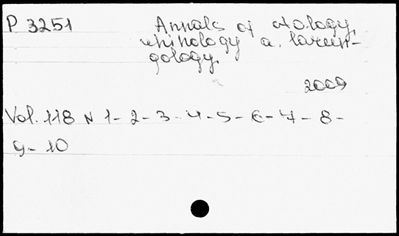 P 3251
Annals of otology,
rhinology a. laryn-
gology.
2009
Vol. 118 N 1-2-3-4-5-6-7-8-
9-10